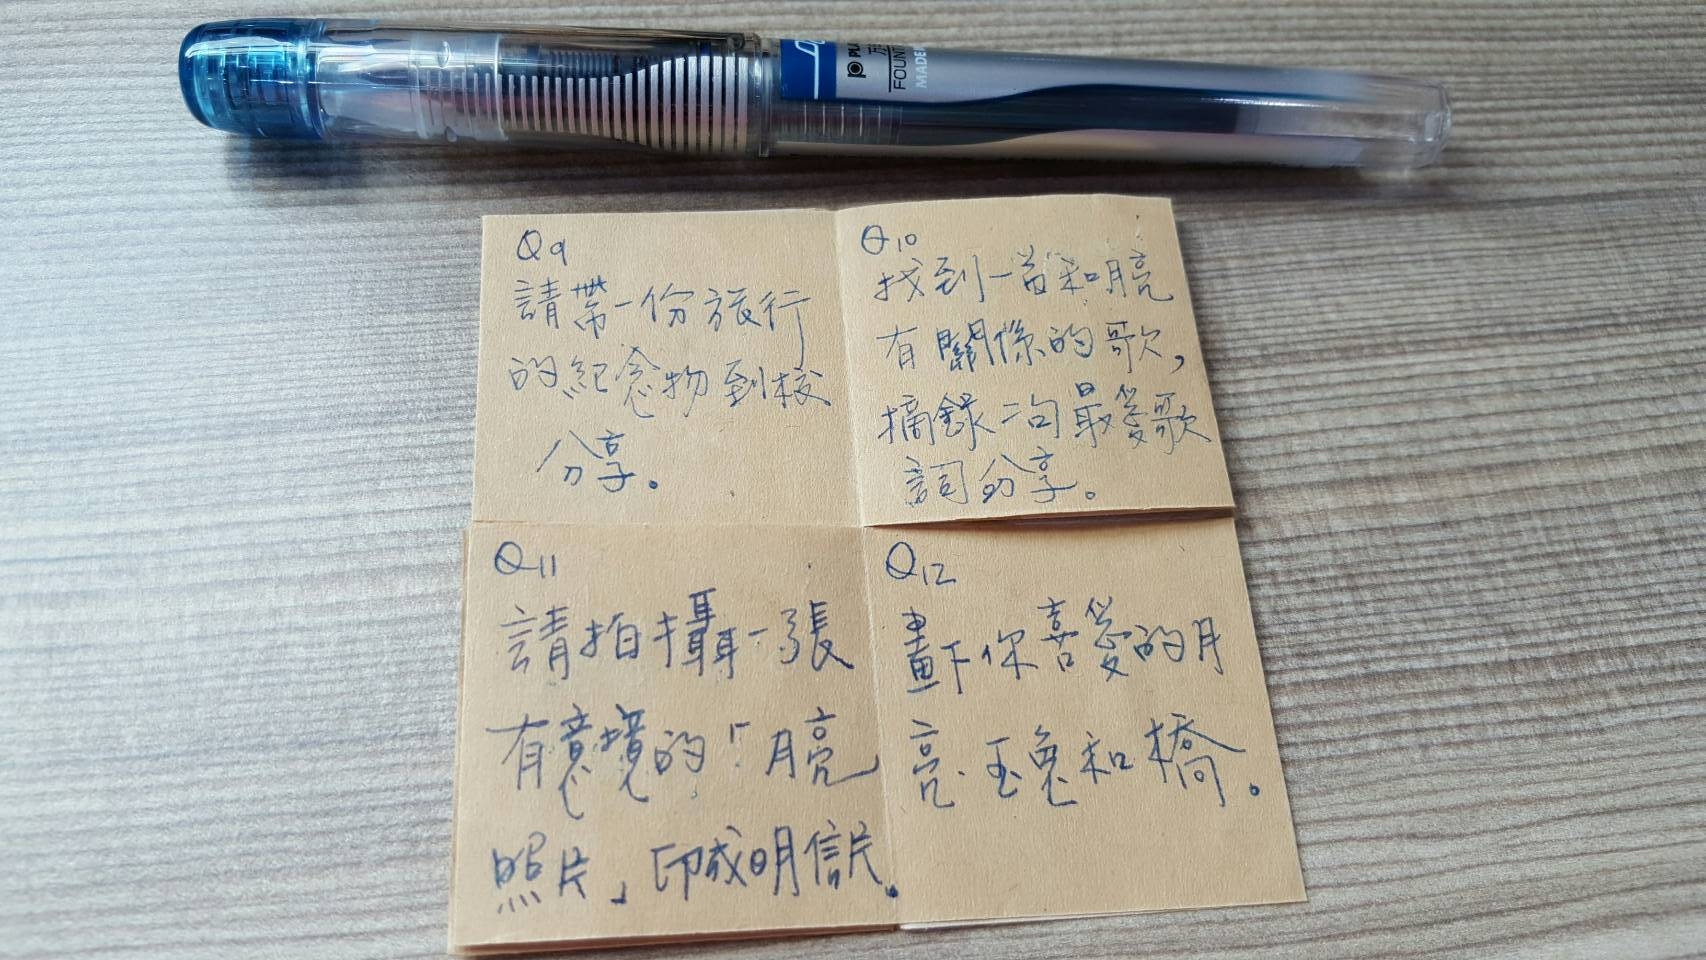 P
FOUNT
MADE
Q9
請帶一份旅行
的紀念物到校
分享。
Q10
找到一首和月亮
有關係的歌,
摘錄一句最愛歌
詞分享。
Q11
請拍攝一張
有意境的「月亮
照片」印成明信片。
Q12
畫下你喜愛的月
亮、玉兔和橋。